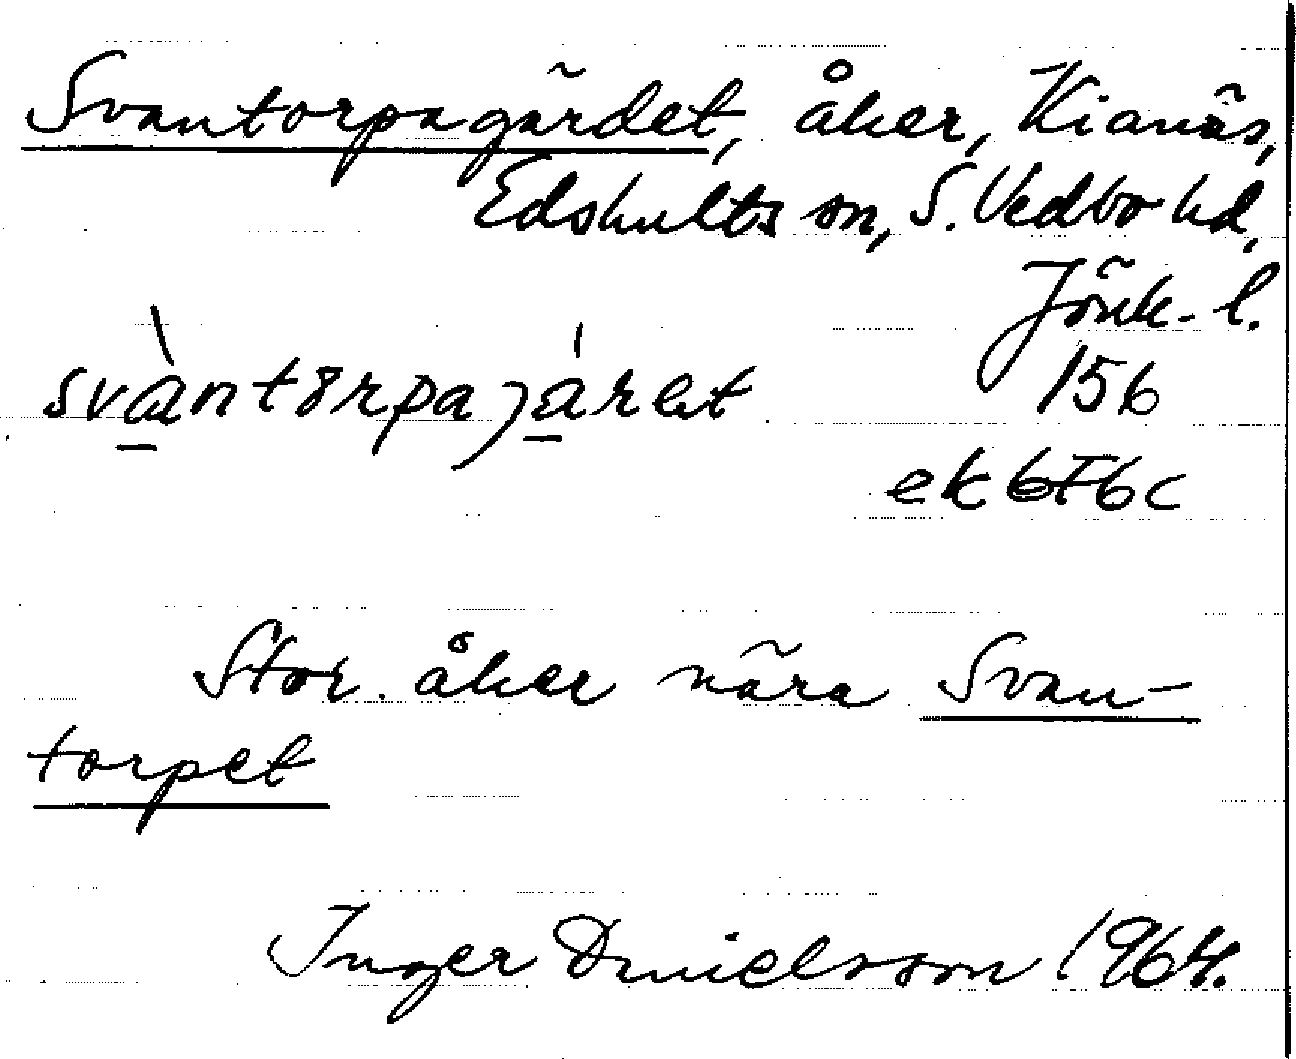 Svantorpagärdet, åker, Kianäs,
Edshults sn, S. Vedbo hd,
Jönk. l.
svàntorpajáret 156
ek 6F6c
Stor åker nära Svan-
torpet
Inger Danielsson 1964.